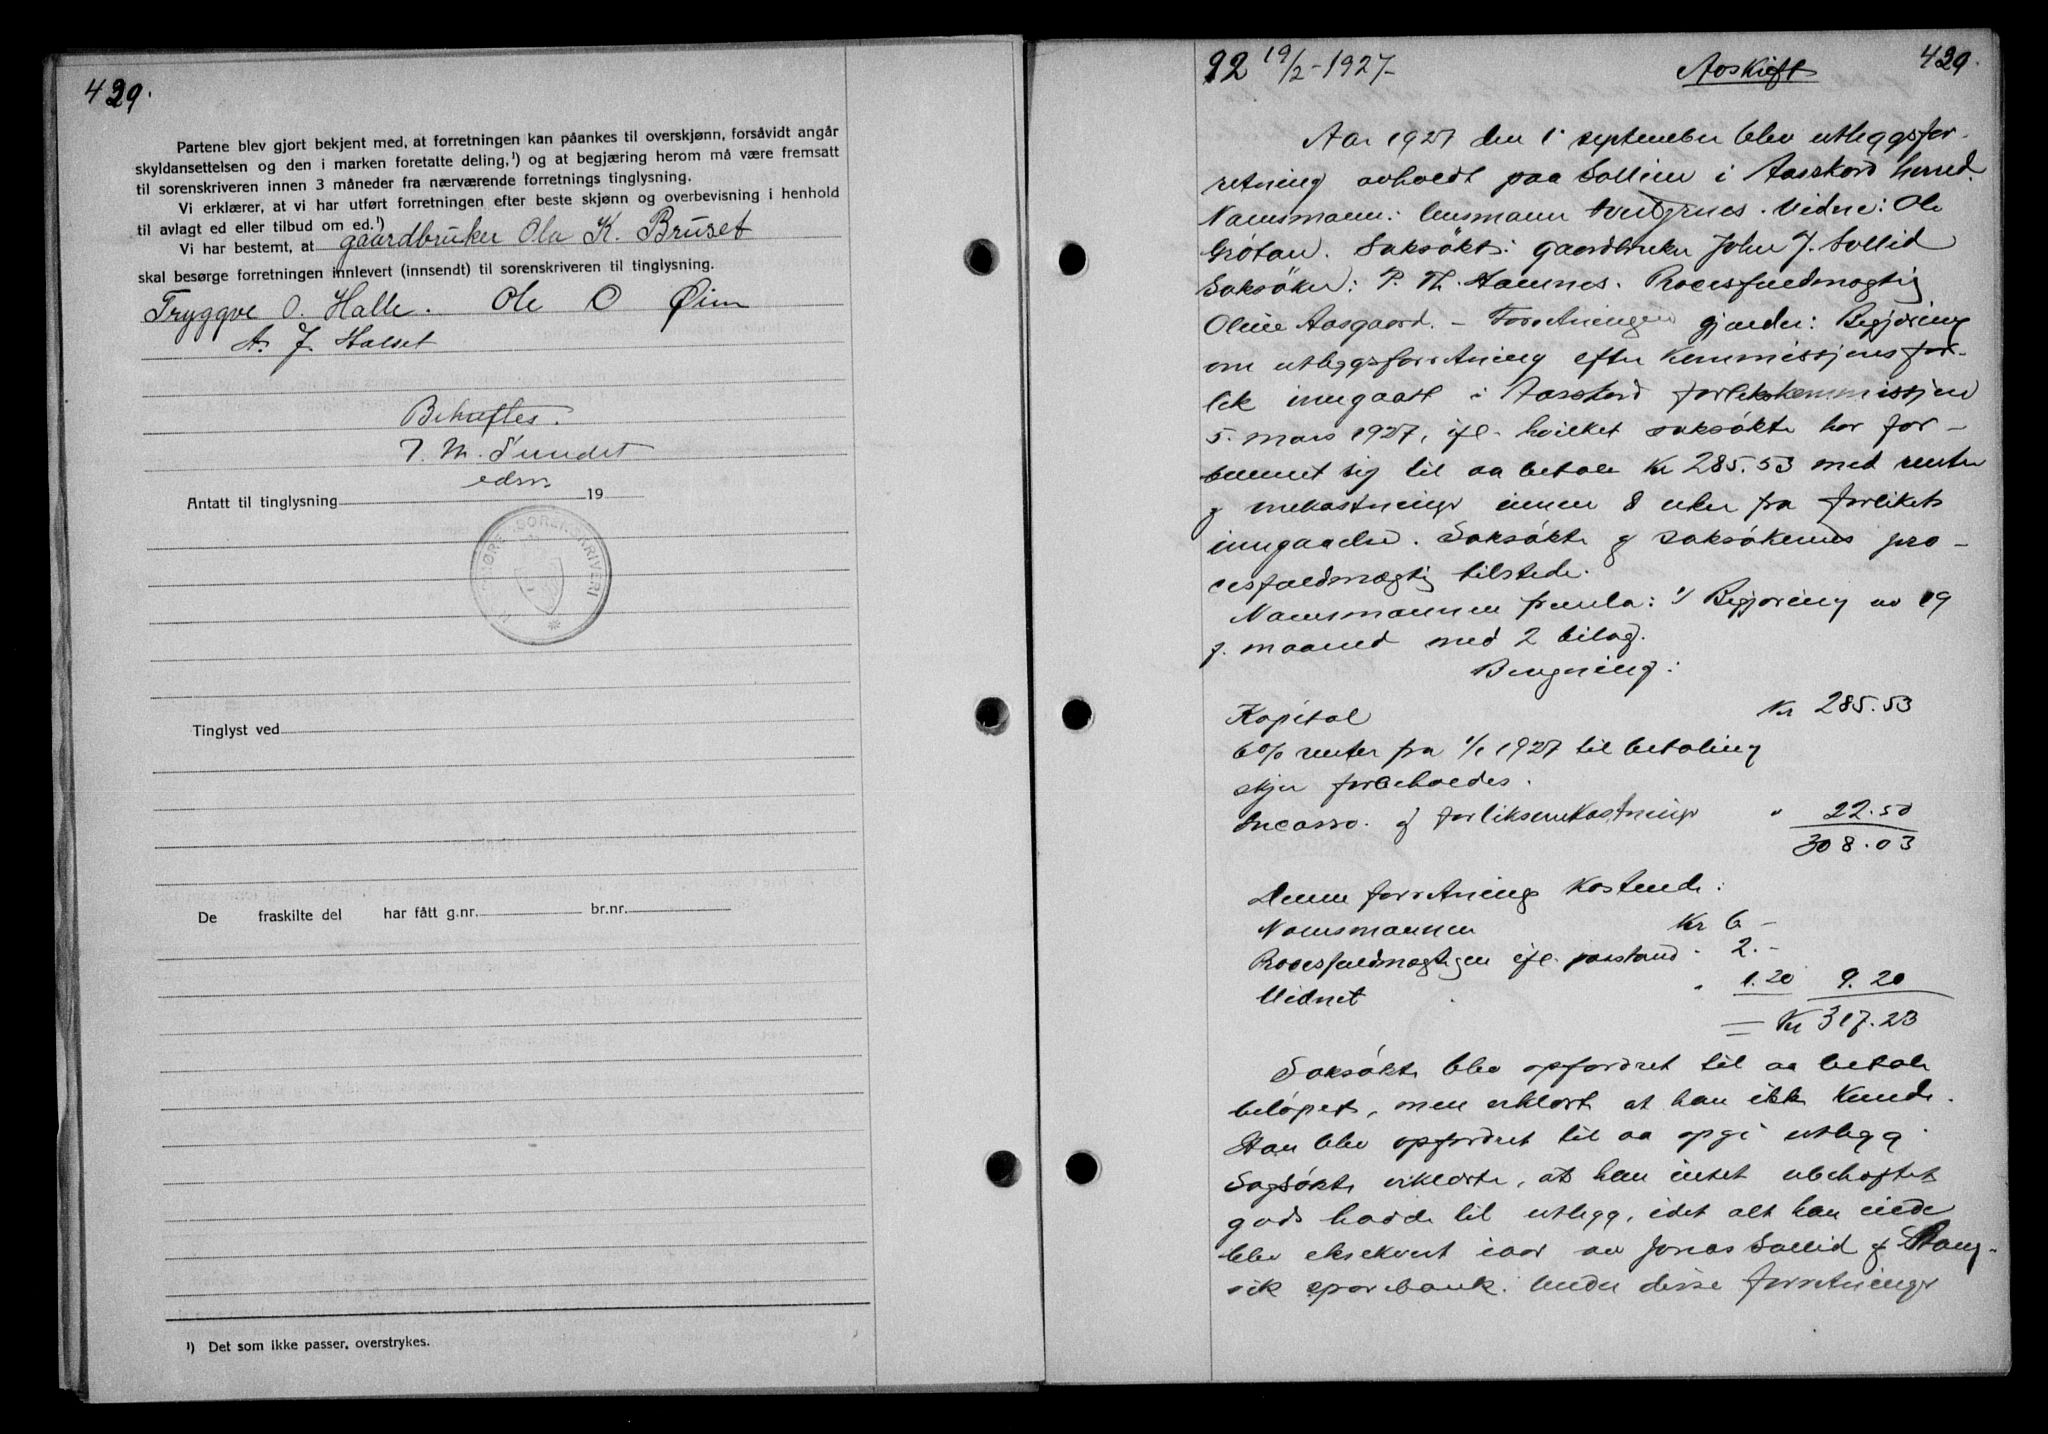 429.
Partene blev gjort bekjent med, at forretningen kan påankes til overskjønn, forsåvidt angår
skyldansettelsen og den i marken foretatte deling,¹) og at begjæring herom må være fremsatt
til sorenskriveren innen 3 måneder fra nærværende forretnings tinglysning.
Vi erklærer, at vi har utført forretningen efter beste skjønn og overbevisning i henhold
til avlagt ed eller tilbud om ed.¹)
Vi har bestemt, at gaardbruker Ola K. Bruset
skal besørge forretningen innlevert (innsendt) til sorenskriveren til tinglysning.
Tryggve O. Halle. Ole O Øim
A. J. Halset
Bekreftes.
J. M. Sundet
edsv.
Antatt til tinglysning 19
SORENSKRIVERI
Tinglyst ved
De fraskilte del har fått g.nr. br.nr.
¹) Det som ikke passer, overstrykes.
92 19/2-1927- Avskrift 429.
Aar 1927 den 1. september blev utleggsfor-
retning avholdt paa Sollien i Aasskard herred.
Namsmann: lensmann Tveitgrues. Vidne: Ole
Grötan. Saksökt: gaardbruker John J. Sollid
Saksöker: P. Th. Hamnes. Procesfuldmægtig
Oline Aasgaard. - Forretningen gjælder: Begjæring
om utleggsforretning efter kommissjonsfor-
lik inngaatt i Aasskard forlikskommissjon
5. mars 1927, ifl. hvilket saksökte har for-
bunnet sig til aa betale Kr 285.53 med renter
og omkostninger innen 8 uker fra forlikets
inngaaelse. Saksökte og saksökernes pro-
cesfuldmægtig tilstede.
Namsmannen fremla: 1/ Begjæring av 19
f. maaned med 2 bilag.
Beregning:
Kapital Kr 285.53
6% renter fra 1/1 1927 til betaling
skjer forbeholdes.
Incasso. og forliksomkostninger " 22.50
308.03
Denne forretnings kostende:
Namsmannen Kr 6 -
Procesfuldmægtigen ifl. paastand " 2.-
Vidnet " 1.20 9.20
= Kr 317.23
Saksökte blev opfordret til aa betale
belöpet, men erklærte at han ikke kunde.
Han blev opfordret til aa opgi utlegg
Sagsökte erklærte, at han intet ubeheftet
gods hadde til utlegg, idet alt han eiede
blev eksekvert iaar av Jonas Sollid og Stang-
vik sparebank. Under disse forretninger